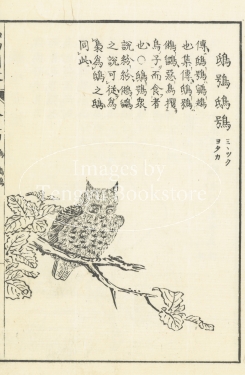 鴟鴞鴟鴞
ミヽツク
ヨタカ
傳鴟鴞鸋鴂
也集傳鴟鴞
鵂鶹惡鳥攫
鳥子而食者
也○鴟鴞衆
說紛紛鵂鶹
之說可從爲
梟爲鴟之鴟
同此
Images by
Tenguin Bookstore